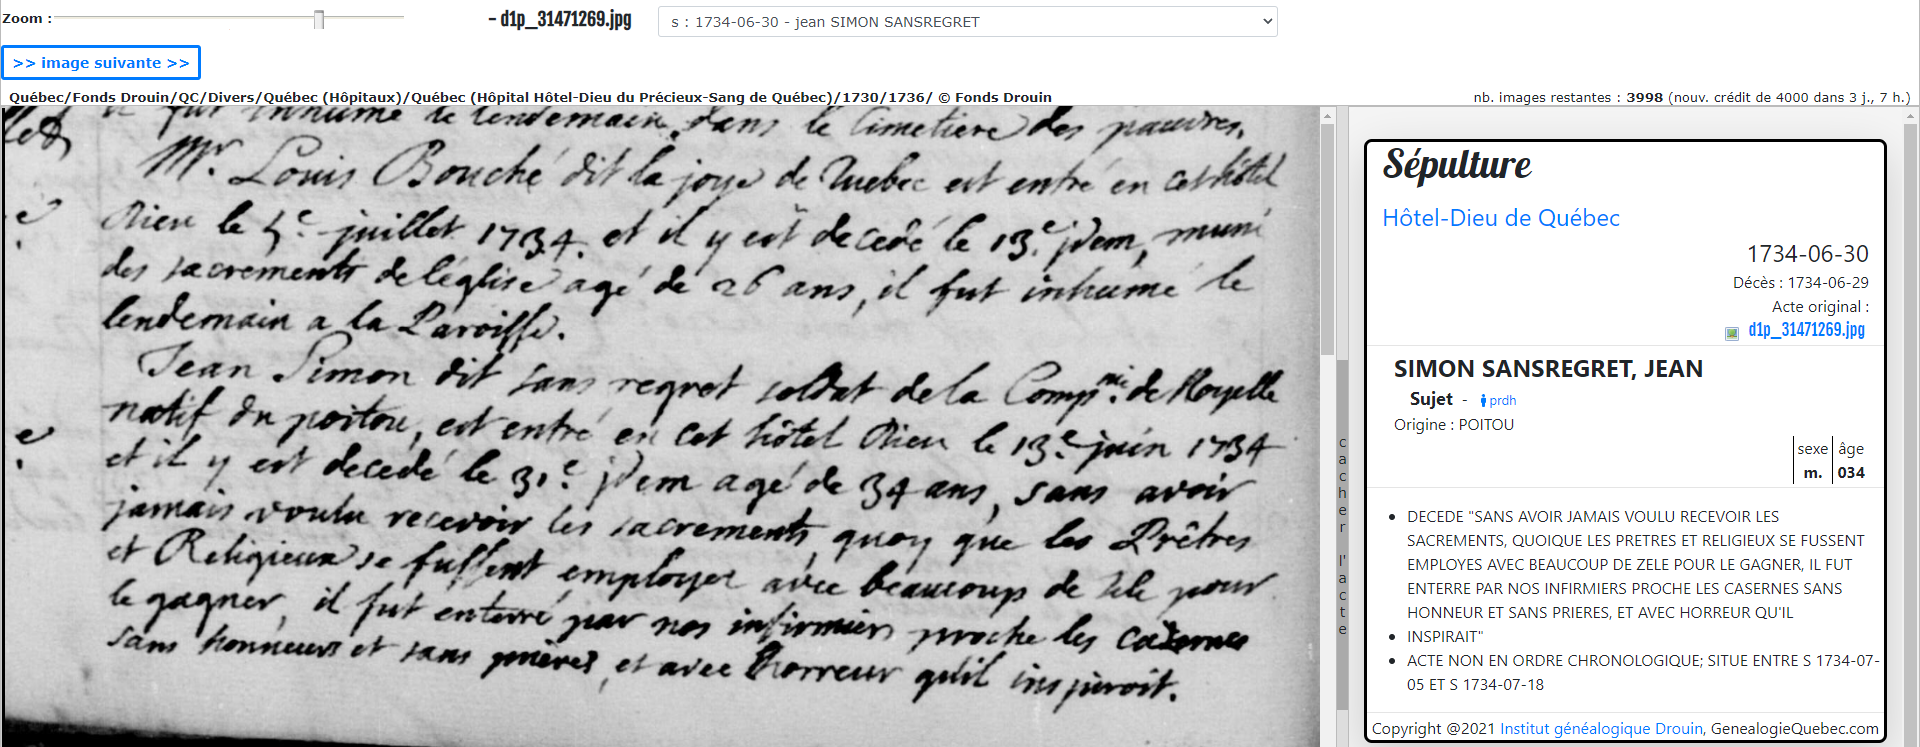 Zoom :
- d1p_31471269.jpg
s : 1734-06-30 - jean SIMON SANSREGRET
>> image suivante >>
Québec/Fonds Drouin/QC/Divers/Québec (Hôpitaux)/Québec (Hôpital Hôtel-Dieu du Précieux-Sang de Québec)/1730/1736/ © Fonds Drouin
nb. images restantes : 3998 (nouv. crédit de 4000 dans 3 j., 7 h.)
il fut inhumé le lendemain, dans le Cimetiere des pauvres.
Mr. Louis Bouché dit la joye de Quebec est entré en cet hôtel
Dieu le 5e juillet 1734. et il y est decedé le 13e. jdem, muni
des sacrements de l'église agé de 26 ans, il fut inhumé le
lendemain a la Paroisse.
Jean Simon dit sans regret soldat de la Compnie. de
natif du poitou, est entré en cet hôtel Dieu le 13e. juin 1734
et il y est decedé le 31e. jdem agé de 34 ans, sans avoir
jamais voulu recevoir les sacrements, quoy que les Prêtres
et Religieux se fussent employez avec beaucoup de zele pour
le gagner, il fut enterré par nos infirmiers proche les cazernes
sans honneurs et sans prières, et avec horreur qu'il inspiroit.
cacher l'acte
Sépulture
Hôtel-Dieu de Québec
1734-06-30
Décès : 1734-06-29
Acte original :
d1p_31471269.jpg
SIMON SANSREGRET, JEAN
Sujet - prdh
Origine : POITOU
sexe âge
m. 034
DECEDE "SANS AVOIR JAMAIS VOULU RECEVOIR LES
SACREMENTS, QUOIQUE LES PRETRES ET RELIGIEUX SE FUSSENT
EMPLOYES AVEC BEAUCOUP DE ZELE POUR LE GAGNER, IL FUT
ENTERRE PAR NOS INFIRMIERS PROCHE LES CASERNES SANS
HONNEUR ET SANS PRIERES, ET AVEC HORREUR QU'IL
INSPIRAIT"
ACTE NON EN ORDRE CHRONOLOGIQUE; SITUE ENTRE S 1734-07-
05 ET S 1734-07-18
Copyright @2021 Institut généalogique Drouin, GenealogieQuebec.com